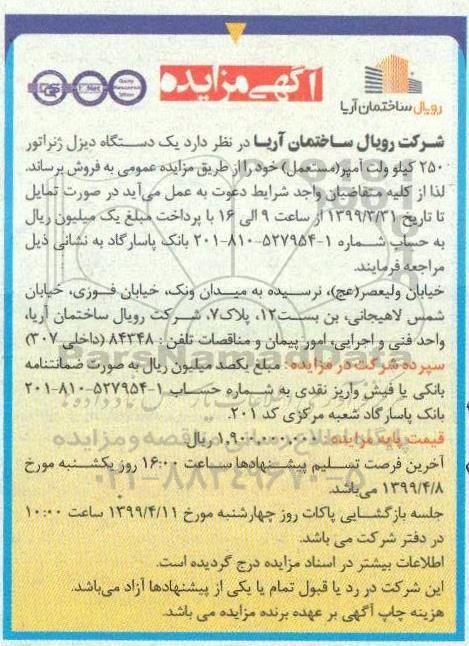 رویال ساختمان آریا
آگهی مزایده
شرکت رویال ساختمان آریا در نظر دارد یک دستگاه دیزل ژنراتور
۲۵۰ کیلو ولت آمپر(مستعمل) خود را از طریق مزایده عمومی به فروش برساند.
لذا از کلیه متقاضیان واجد شرایط دعوت به عمل می‌آید در صورت تمایل
تا تاریخ ۱۳۹۹/۳/۳۱ از ساعت ۹ الی ۱۶ با پرداخت مبلغ یک میلیون ریال
به حساب شماره ۱-۵۲۷۹۵۴-۸۱۰-۲۰۱ بانک پاسارگاد به نشانی ذیل
مراجعه فرمایند.
خیابان ولیعصر(عج)، نرسیده به میدان ونک، خیابان فوزی، خیابان
شمس لاهیجانی، بن بست۱۲، پلاک۷، شرکت رویال ساختمان آریا،
واحد فنی و اجرایی، امور پیمان و مناقصات تلفن: ۸۴۳۴۸ (داخلی ۳۰۷)
سپرده شرکت در مزایده: مبلغ یکصد میلیون ریال به صورت ضمانتنامه
بانکی یا فیش واریز نقدی به شماره حساب ۱-۵۲۷۹۵۴-۸۱۰-۲۰۱
بانک پاسارگاد شعبه مرکزی کد ۲۰۱.
قیمت پایه مزایده: ۱,۹۰۰,۰۰۰,۰۰۰ ریال
آخرین فرصت تسلیم پیشنهادها ساعت ۱۶:۰۰ روز یکشنبه مورخ
۱۳۹۹/۴/۸ می‌باشد.
جلسه بازگشایی پاکات روز چهارشنبه مورخ ۱۳۹۹/۴/۱۱ ساعت ۱۰:۰۰
در دفتر شرکت می باشد.
اطلاعات بیشتر در اسناد مزایده درج گردیده است.
این شرکت در رد یا قبول تمام یا یکی از پیشنهادها آزاد می‌باشد.
هزینه چاپ آگهی بر عهده برنده مزایده می باشد.